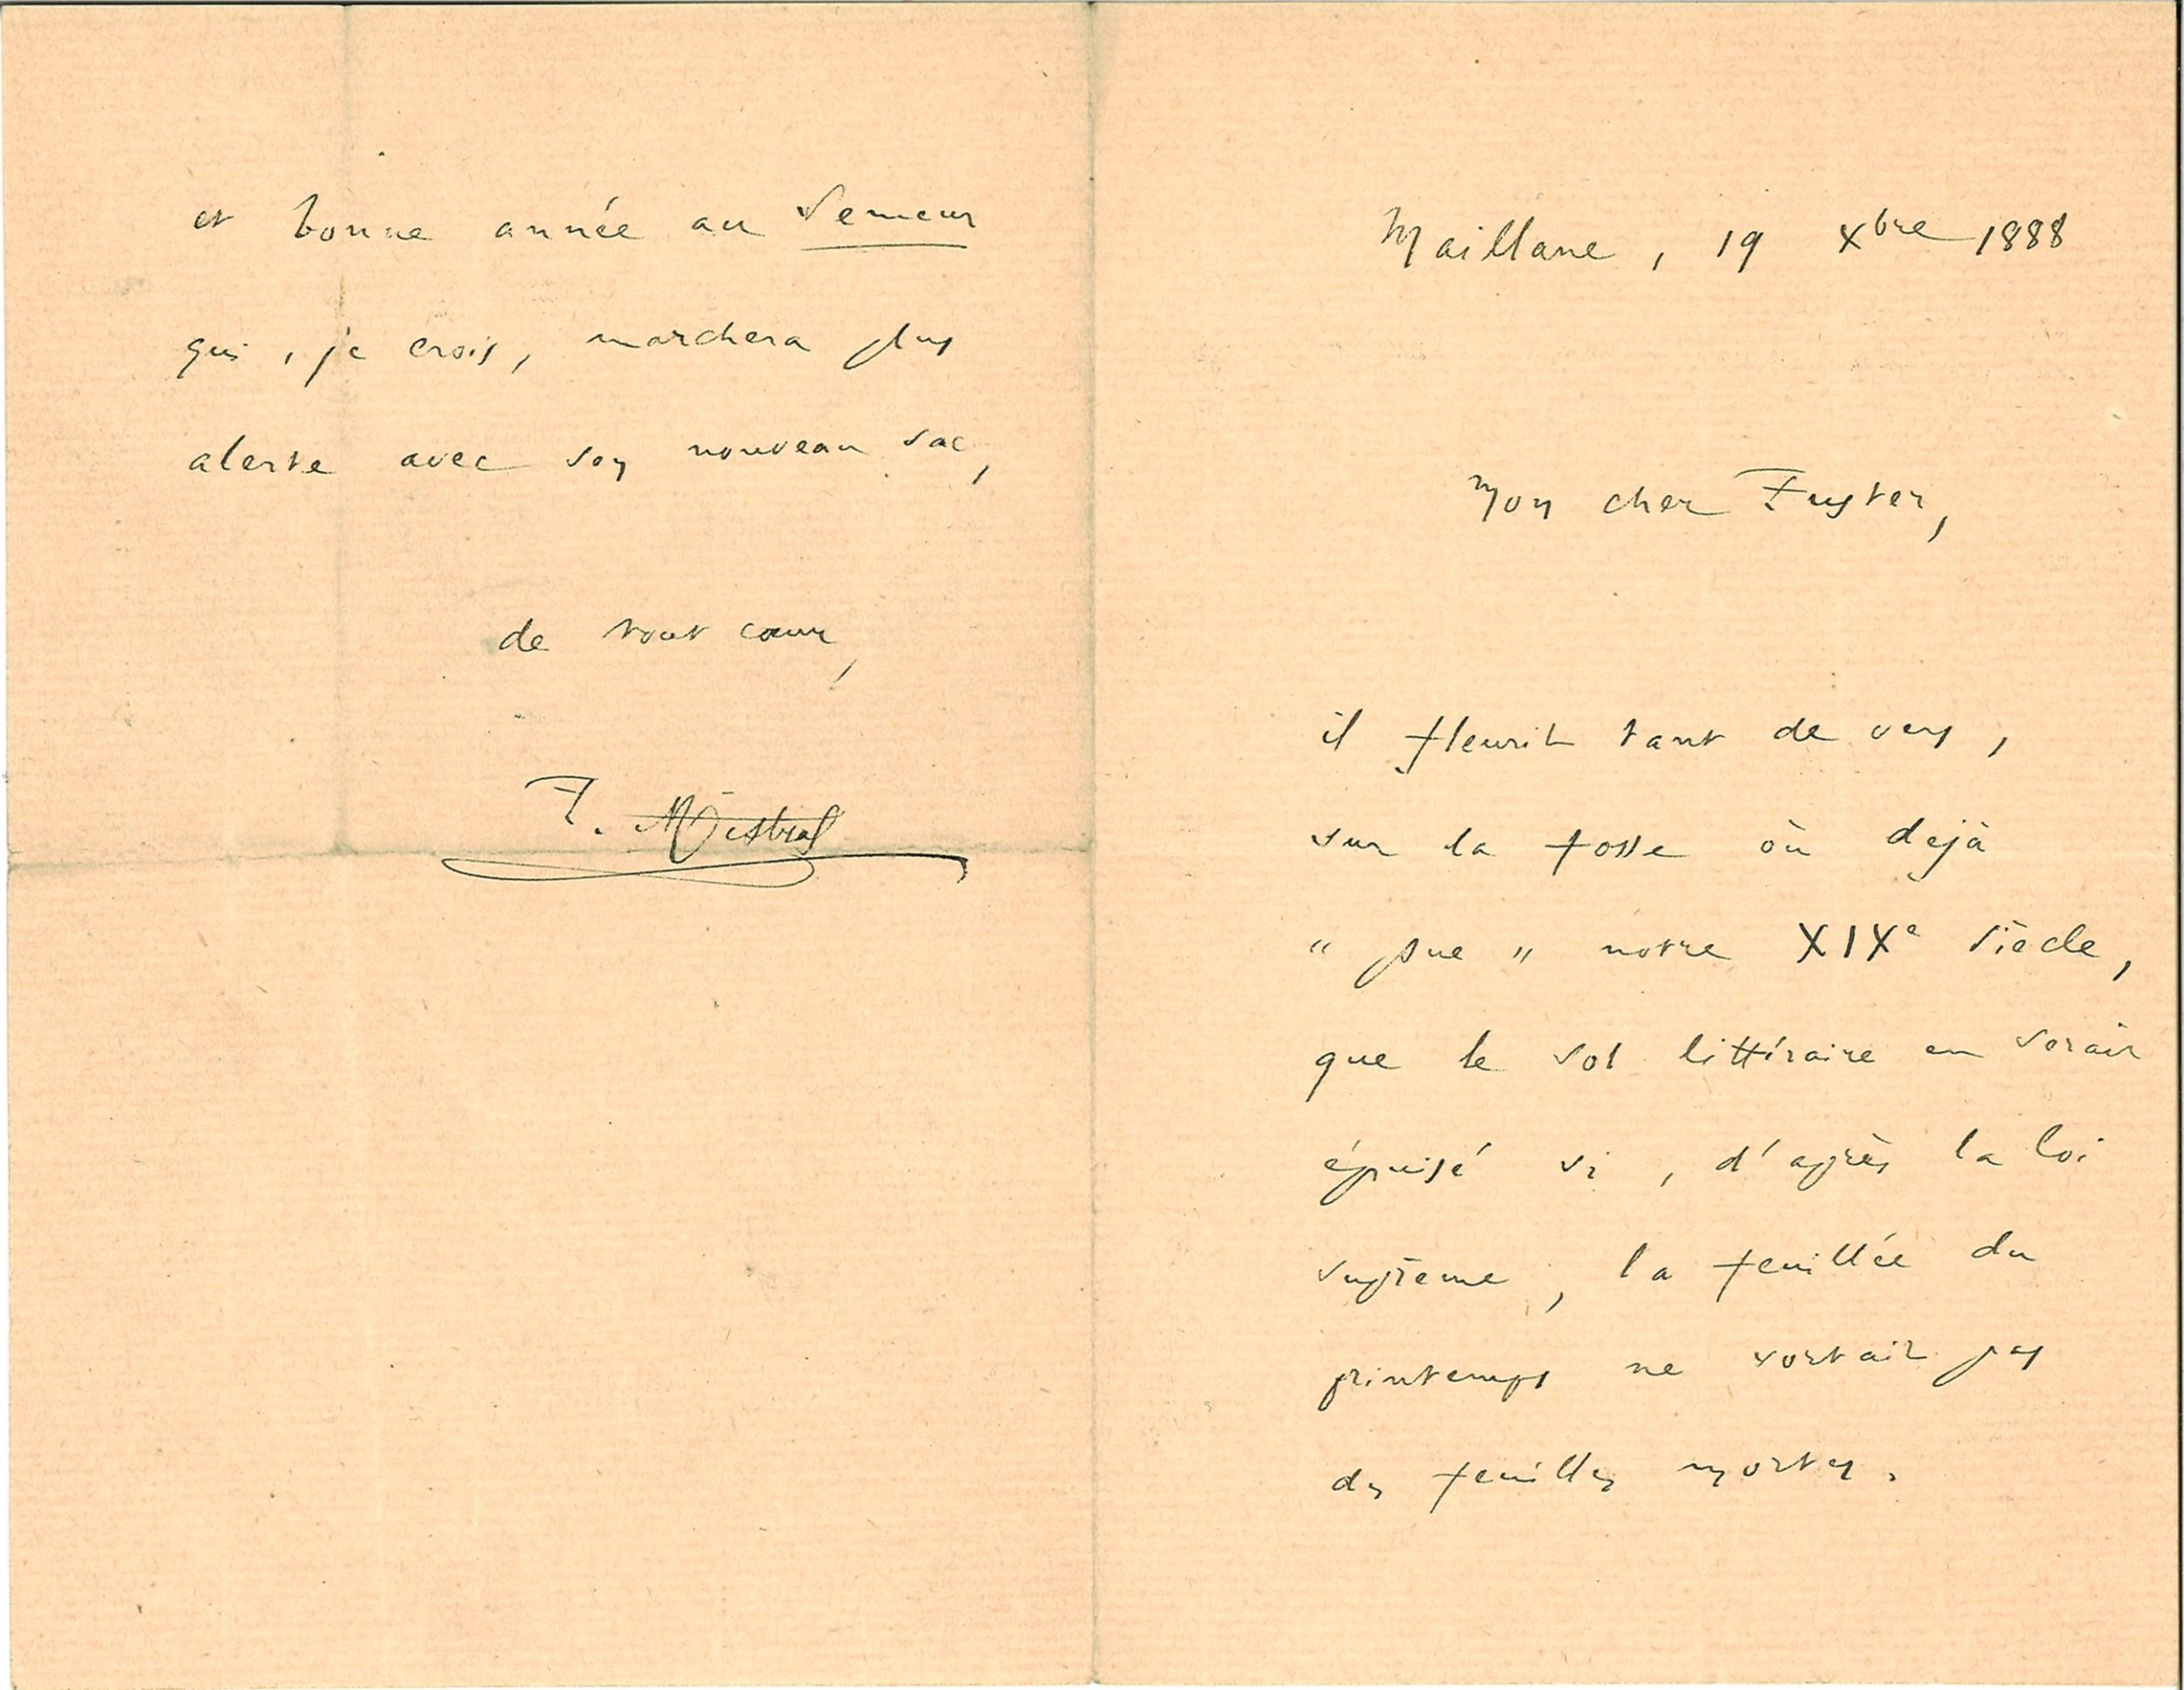 Maillane, 19 Xbre 1888
Mon cher Fuster,
il fleurit tant de vers,
sur la fosse où dejà
" pue " notre XIXe siècle,
que le sol littéraire en serait
épuisé si, d'après la loi
suprême, la feuillée du
printemps ne sortait pas
des feuilles mortes.
et bonne année au Semeur
qui, je crois, marchera plus
alerte avec son nouveau sac,
de tout cœur,
F. Mistral